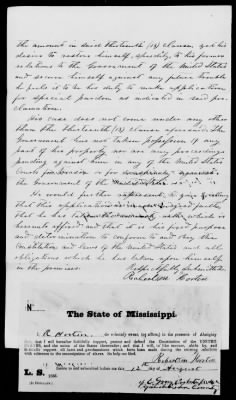 the amount in said thirteenth (13) Clause, yet his
desire to restore himself, speedily, to his former
relations to the Government of the United States
and secure himself against any future trouble
he feels it to be his duty to make application
for special pardon as indicated in said pro-
clamation.
His case does not come under any other
than the Thirteenth (13) Clause aforesaid. The
Government has not taken possession of any
part of his property, nor are any proceedings
pending against him in any of the United States
Courts for treason or for conspiracy against
the Government of the United States
He would further represent to your
that this application is in good faith
that he has taken the oath which is
hereunto affixed and that it is his fixed purpose
and determination to conform to and obey the
Constitution and laws of the United States and all
obligations which he has taken upon himself
in the premises.
Respectfully submitted
Robertson Horton
The State of Mississippi.
I, R Horton do solemnly swear, (or affirm) in the presence of Almighty
God, that I will henceforth faithfully support, protect and defend the Constitution of the UNITED
STATES, and the union of the States thereunder; and that I will, in like manner, abide by and
faithfully support all laws and proclamations which have been made during the existing rebellion
with reference to the emancipation of slaves. So help me God.
Robertson Horton
L. S.
Sworn to and subscribed before me this 12 day of August